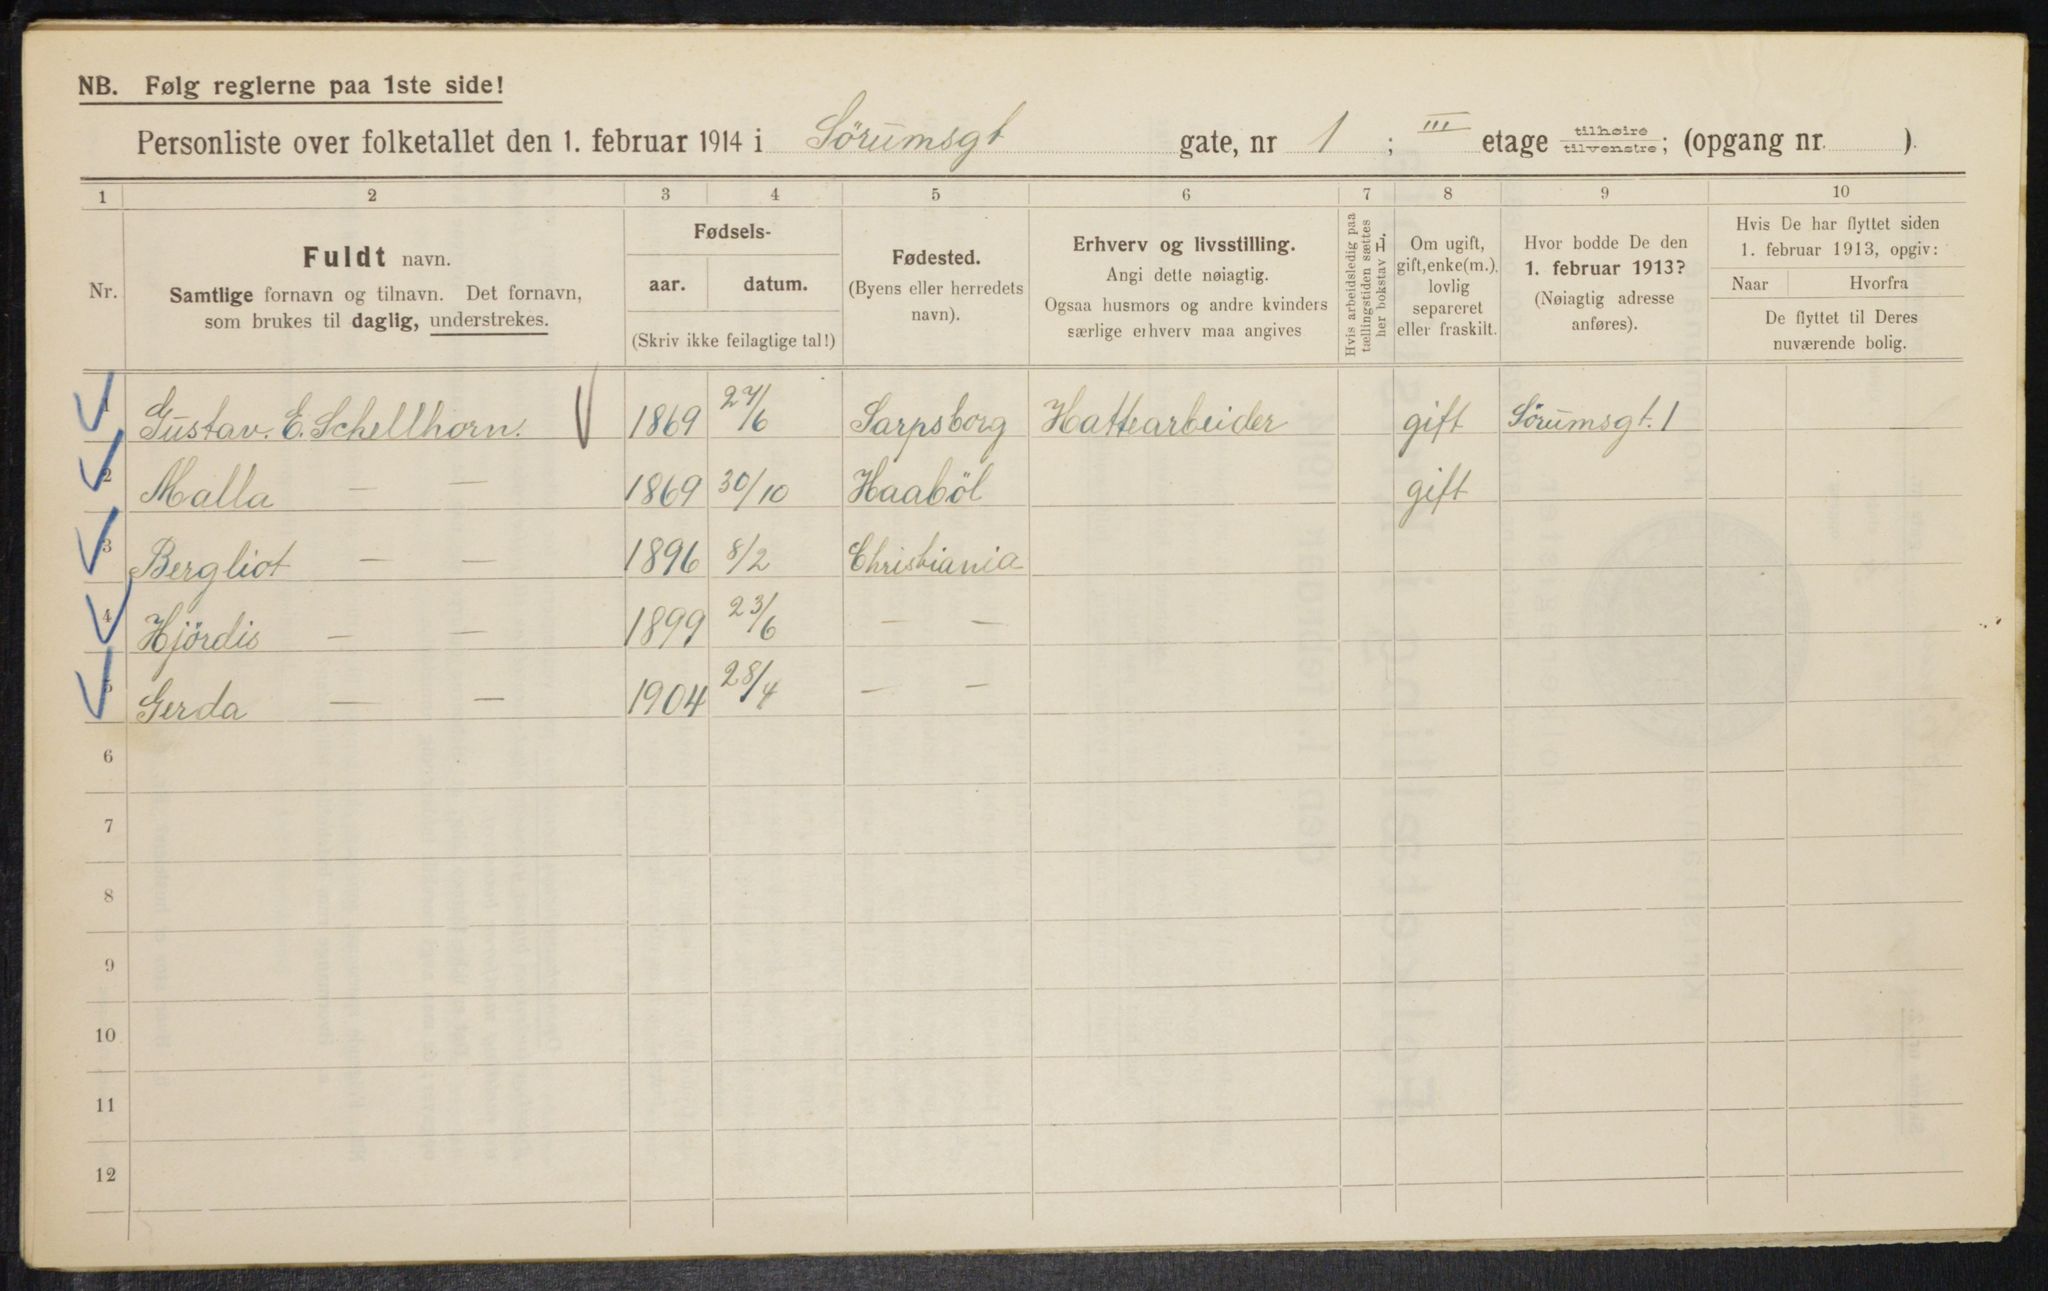 NB. Følg reglerne paa 1ste side!
Personliste over folketallet den 1. februar 1914 i Sörumsgt gate, nr 1; III etage tilhøire tilvenstre; (opgang nr. ).
1 2 3 4 5 6 7 8 9 10
Nr.
Fuldt navn.
Samtlige fornavn og tilnavn. Det fornavn,
som brukes til daglig, understrekes.
Fødsels-
aar. datum.
(Skriv ikke feilagtige tal!)
Fødested.
(Byens eller herredets
navn).
Erhverv og livsstilling.
Angi dette nøiagtig.
Ogsaa husmors og andre kvinders
særlige erhverv maa angives
Hvis arbeidsledig paa
tællingstiden sættes
her bokstav L.
Om ugift,
gift, enke(m.),
lovlig
separeret
eller fraskilt.
Hvor bodde De den
1. februar 1913?
(Nøiagtig adresse
anføres).
Hvis De har flyttet siden
1. februar 1913, opgiv:
Naar Hvorfra
De flyttet til Deres
nuværende bolig.
1 Gustav. E. Schellhorn. 1869 27/6 Sarpsborg Hattearbeider gift Sörumsgt. 1
2 Malla — — 1869 30/10 Haaböl gift
3 Bergliot — — 1896 8/2 Christiania
4 Hjördis — — 1899 23/6 — —
5 Gerda — — 1904 28/4 — —
6
7
8
9
10
11
12